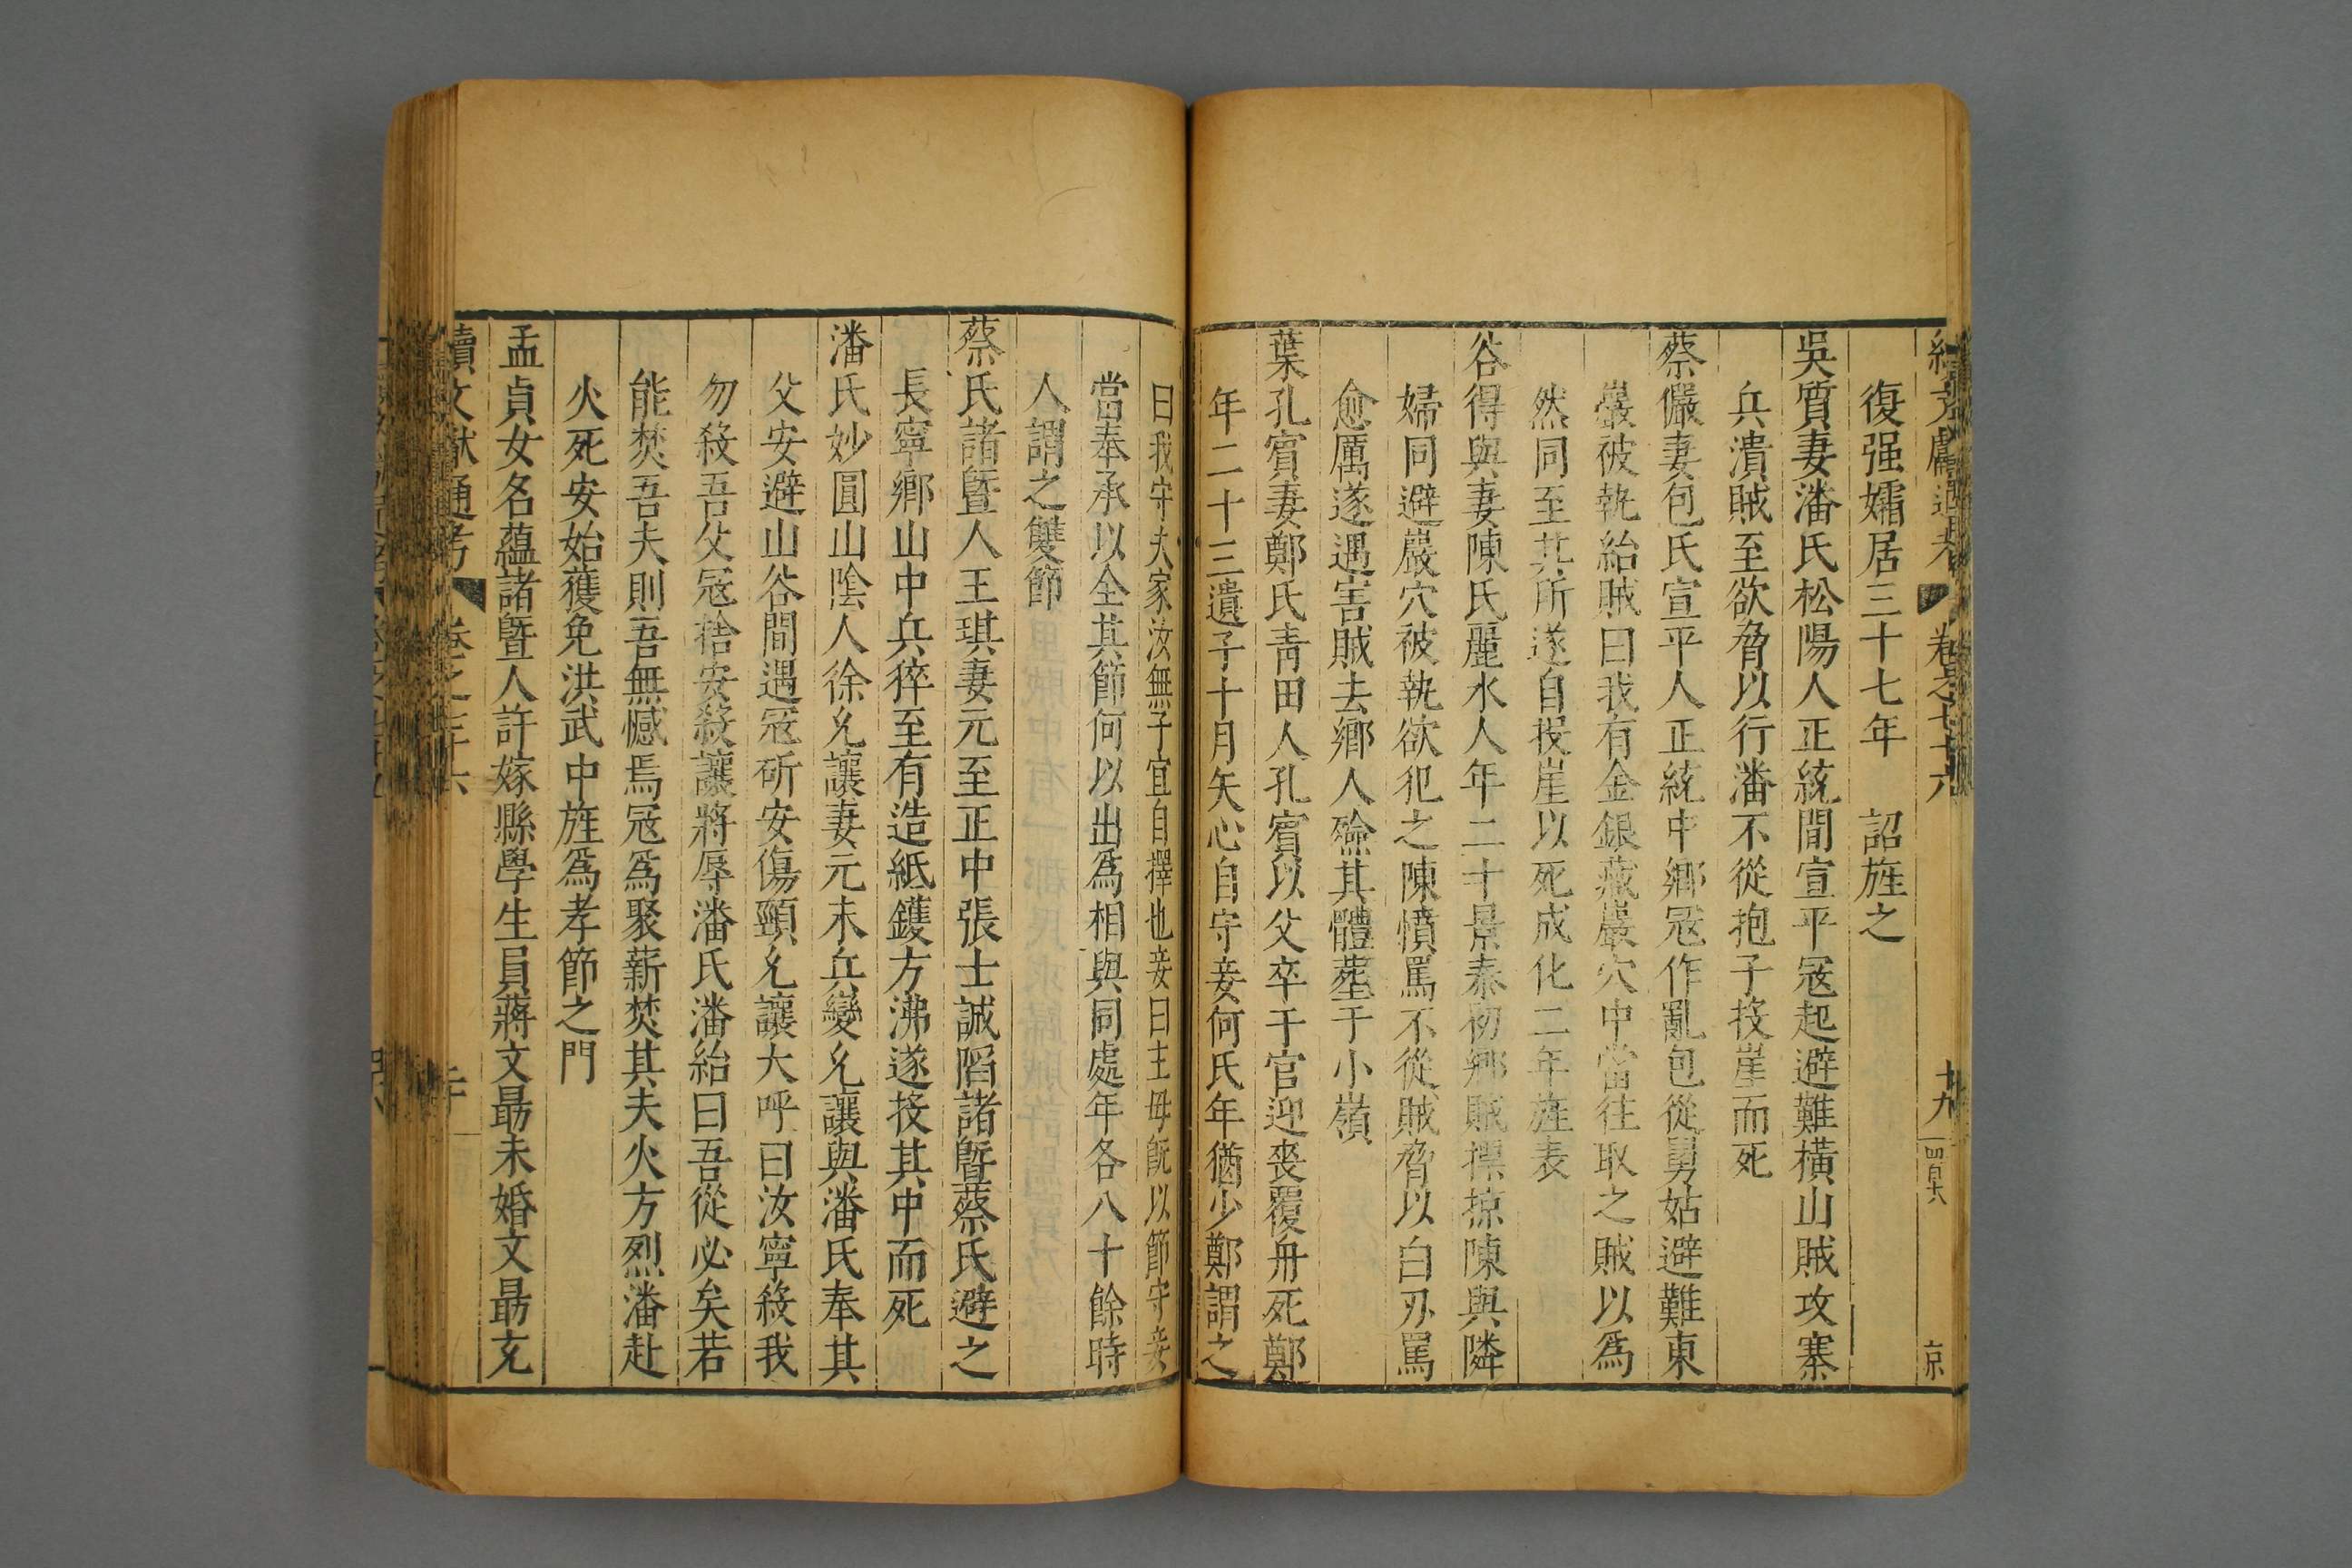 續文獻通考 卷之七十六 十九 京
復强孀居三十七年 詔旌之
吳質妻潘氏松陽人正統間宣平冦起避難橫山賊攻寨
兵潰賊至欲脅以行潘不從抱子投崖而死
蔡儼妻包氏宣平人正統中鄉冦作亂包從舅姑避難東
巖被執紿賊曰我有金銀藏巖穴中當往取之賊以爲
然同至其所遂自投崖以死成化二年旌表
谷得與妻陳氏麗水人年二十景泰初鄉賊摽掠陳與隣
婦同避巖穴被執欲犯之陳憤罵不從賊脅以白刃罵
愈厲遂遇害賊去鄉人殮其體塟于小嶺
葉孔賓妻鄭氏靑田人孔賓以父卒于官迎喪覆舟死鄭
年二十三遺子十月矢心自守妾何氏年猶少鄭謂之
曰我守夫家汝無子宜自擇也妾曰主毋旣以節守妾
當奉承以全其節何以出爲相與同處年各八十餘時
人謂之雙節
蔡氏諸暨人王琪妻元至正中張士誠陷諸暨蔡氏避之
長寧鄉山中兵猝至有造紙鑊方沸遂投其中而死
潘氏妙圓山陰人徐允讓妻元末兵變允讓與潘氏奉其
父安避山谷間遇冦斫安傷頸允讓大呼曰汝寧殺我
勿殺吾父冦捨安殺讓將辱潘氏潘紿曰吾從必矣若
能焚吾夫則吾無憾焉冦爲聚薪焚其夫火方烈潘赴
火死安始獲免洪武中旌爲孝節之門
孟貞女名蘊諸暨人許嫁縣學生員蔣文勗未婚文勗充
續文獻通考 卷之七十六